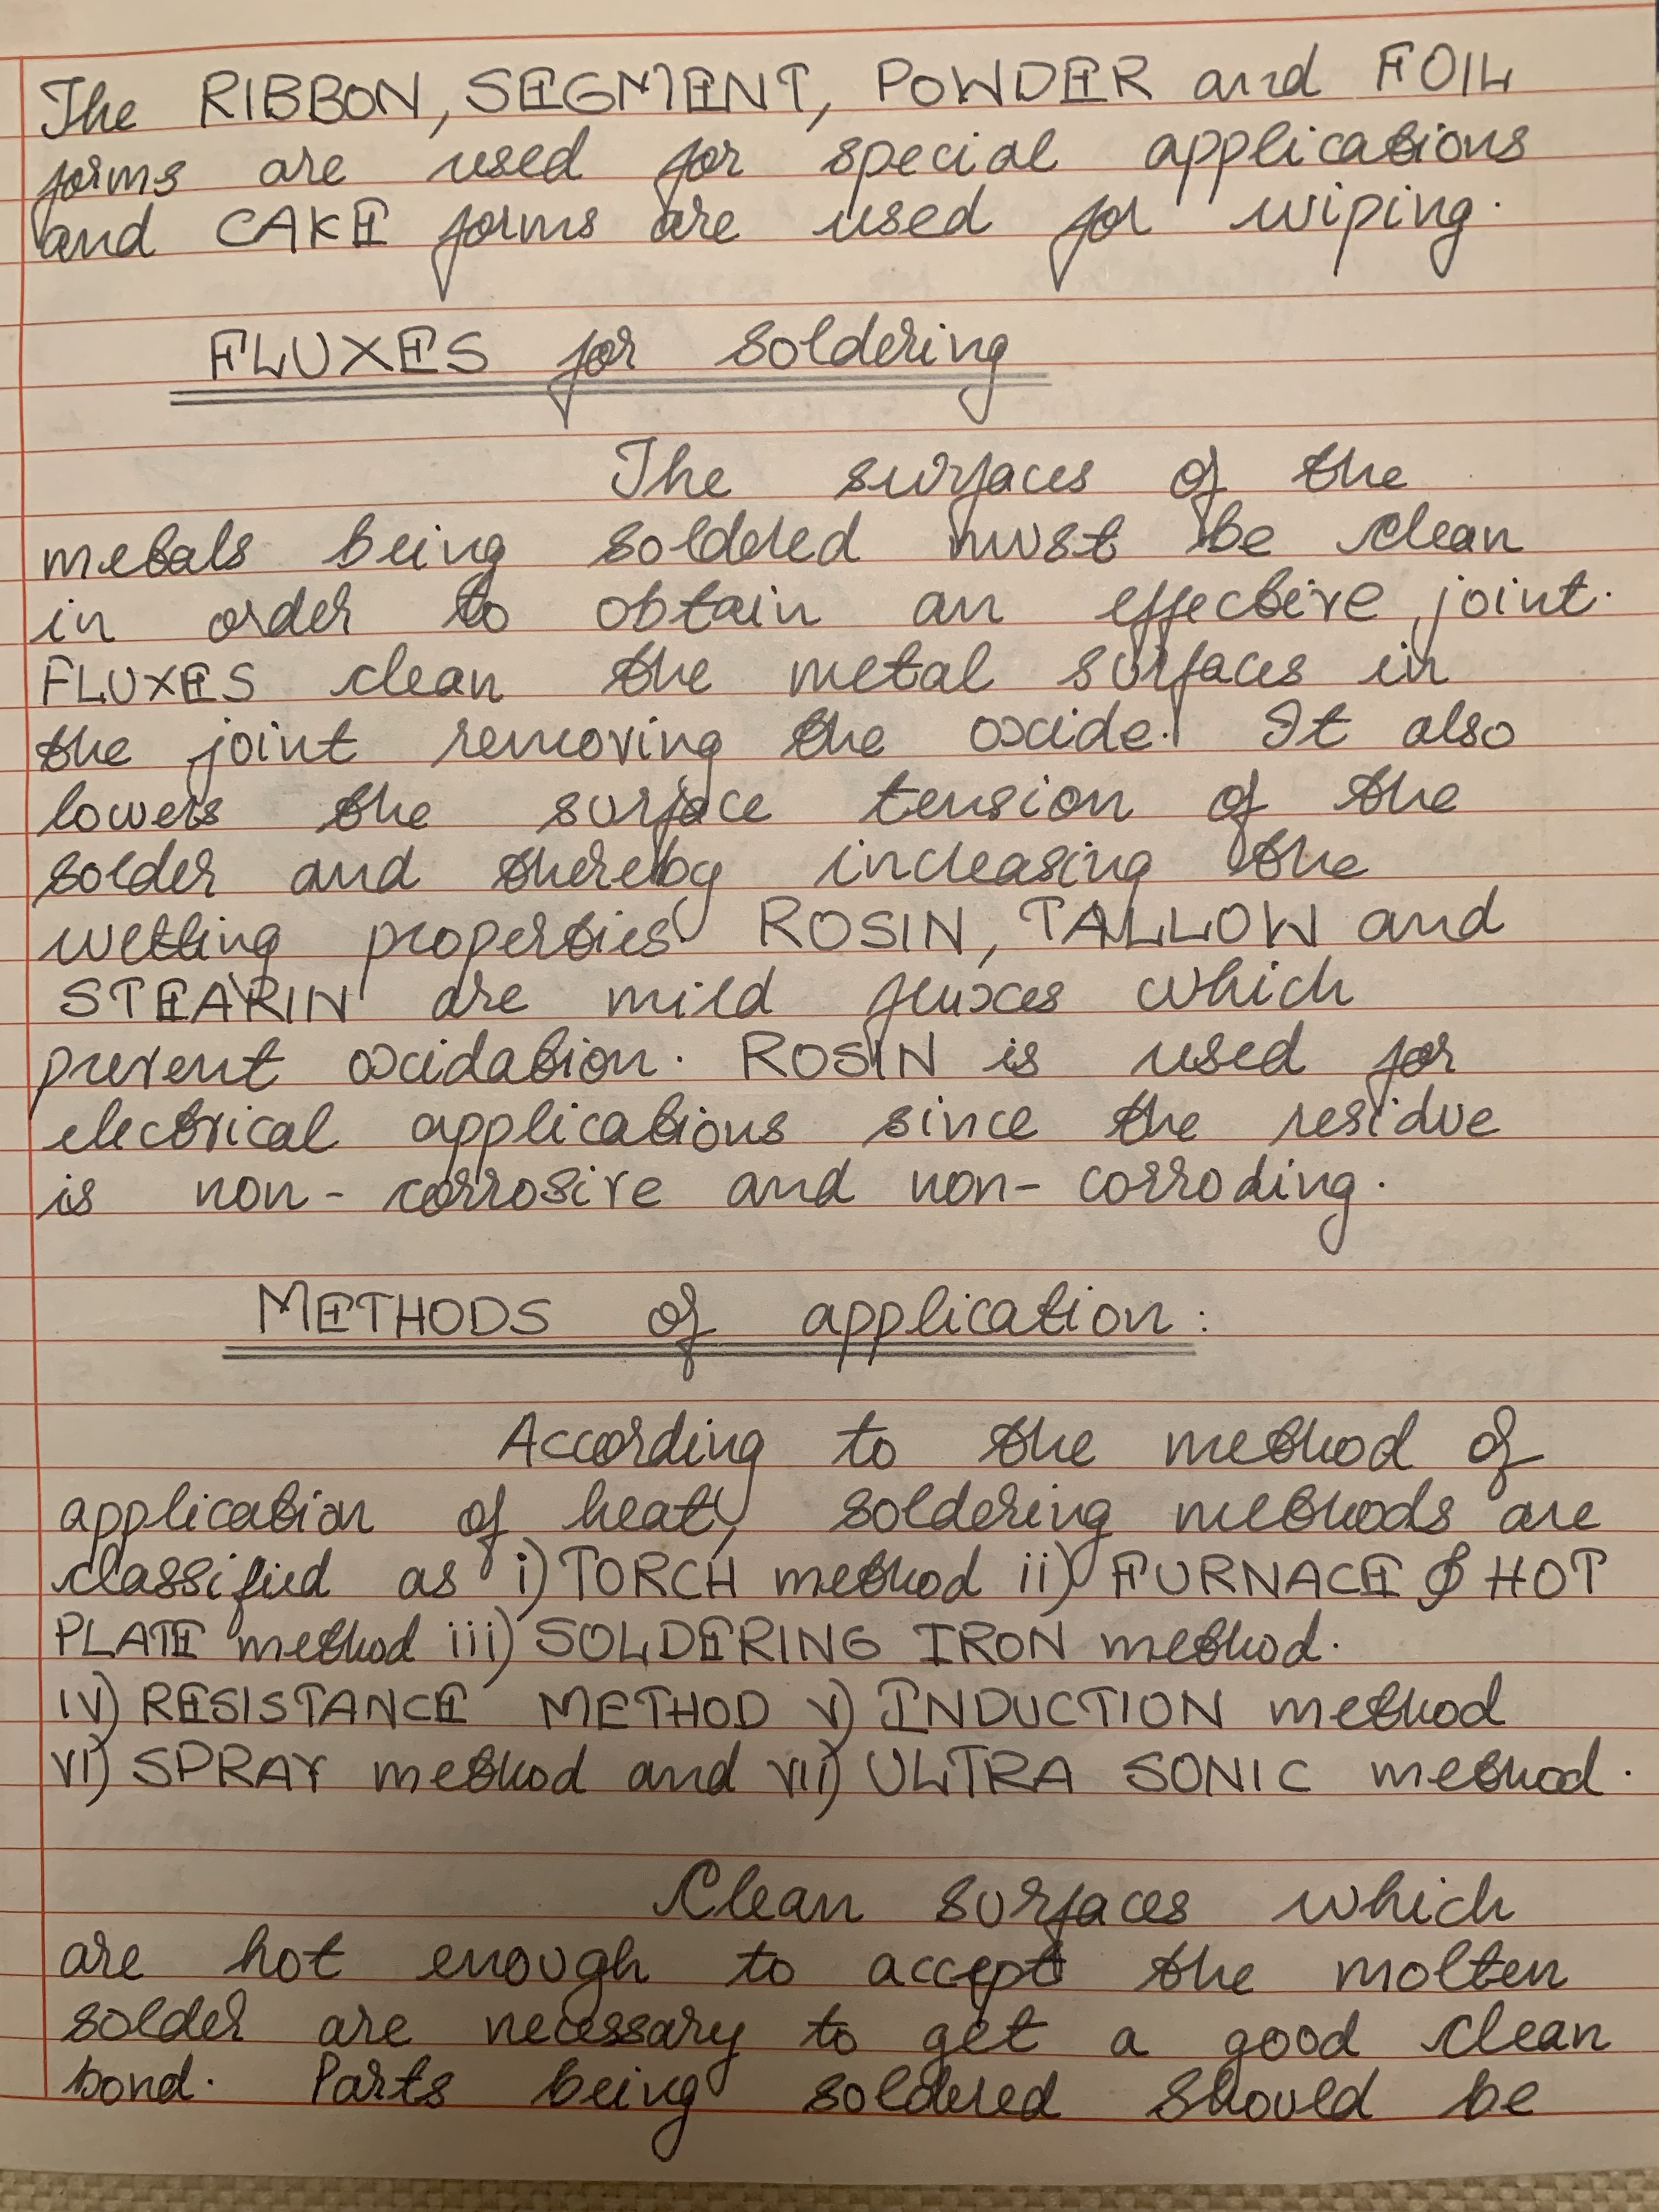 The RIBBON, SEGMENT, POWDER and FOIL
forms are used for special applications
and CAKE forms are used for wiping.
FLUXES for soldering
The surfaces of the
metals being soldered must be clean
in order to obtain an effective joint.
FLUXES clean the metal surfaces in
the joint removing the oxide. It also
lowers the surface tension of the
solder and thereby increasing the
wetting properties. ROSIN, TALLOW and
STEARIN are mild fluxes which
prevent oxidation. ROSIN is used for
electrical applications since the residue
is non-corrosive and non-corroding.
METHODS of application:
According to the method of
application of heat, soldering methods are
classified as i) TORCH method ii) FURNACE & HOT
PLATE method iii) SOLDERING IRON method.
iv) RESISTANCE METHOD v) INDUCTION method
vi) SPRAY method and vii) ULTRA SONIC method.
Clean surfaces which
are hot enough to accept the molten
solder are necessary to get a good clean
bond. Parts being soldered should be